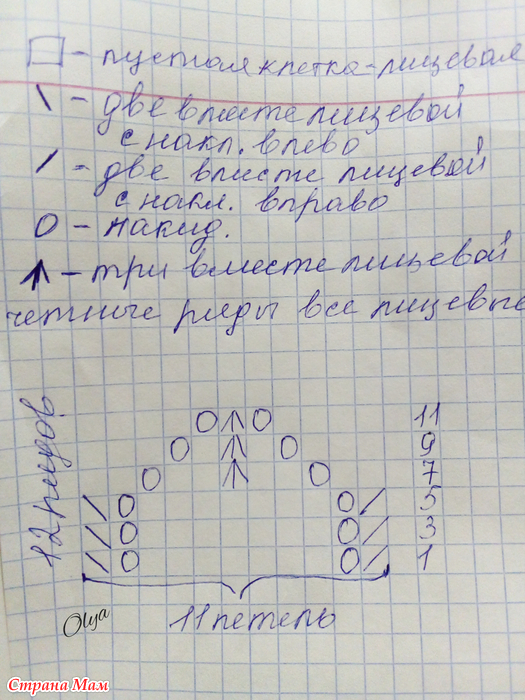 □ - пустая клетка - лицевая
\ - две вместе лицевой
с накл. влево
/ - две вместе лицевой
с накл. вправо
O - накид.
↑ - три вместе лицевой
четные ряды все лицевые
12 рядов
O ↑ O 11
O ↑ O 9
O ↑ O 7
\ O O / 5
\ O O / 3
\ O O / 1
11 петель
Olya
Страна Мам